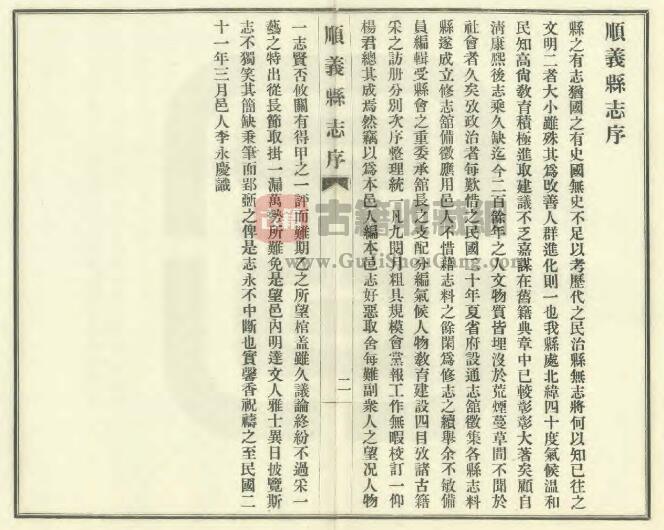 順義縣志序
縣之有志猶國之有史國無史不足以考歷代之民治縣無志將何以知已往之
文明二者大小雖殊其爲改善人群進化則一也我縣處北緯四十度氣候溫和
民知高尙敎育積極進取建議不乏嘉謀在舊籍典章中已較彰彰大著矣顧自
淸康熙後志乘久缺迄今二百餘年之人文物質皆埋沒於荒煙蔓草間不聞於
社會者久矣攷政治者每歎惜之民國二十年夏省府設通志舘徵集各縣志料
縣遂成立修志舘備徵應用邑人惜藉志料之餘閑爲修志之續舉余不敏備
員編輯受縣會之重委承舘長之支配分編氣候人物敎育建設四目攷諸古籍
采之訪册分別次序整理統一凡九閱月粗具規模會黨報工作無暇校訂一仰
楊君總其成焉然竊以爲本邑人編本邑志好惡取舍每難副衆人之望况人物
順義縣志序
二
一志賢否攸關有得甲之一評而難期乙之所望棺盖雖久議論終紛不過采一
藝之特出從長節取掛一漏萬勢所難免是望邑內明達文人雅士異日披覽斯
志不獨笑其簡缺秉筆而郢斵之俾是志永不中斷也實馨香祝禱之至民國二
十一年三月邑人李永慶識
古籍收藏網
www.GujiShouCang.com
古籍